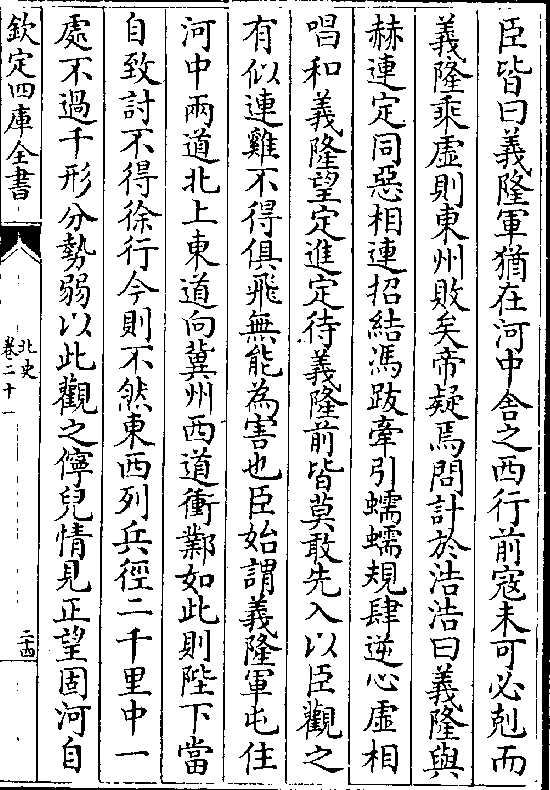 臣皆曰義隆軍猶在河中舍之西行前寇未可必剋而
義隆乘虛則東州敗矣帝疑焉問計於浩浩曰義隆與
赫連定同惡相連招結馮跋牽引蠕蠕規肆逆心虛相
唱和義隆望定進定待義隆前皆莫敢先入以臣觀之
有似連雞不得俱飛無能為害也臣始謂義隆軍屯住
河中兩道北上東道向冀州西道衝鄴如此則陛下當
自致討不得徐行今則不然東西列兵徑二千里中一
處不過千形分勢弱以此觀之儜兒情見正望固河自
欽定四庫全書
北史
卷二十一
二十四